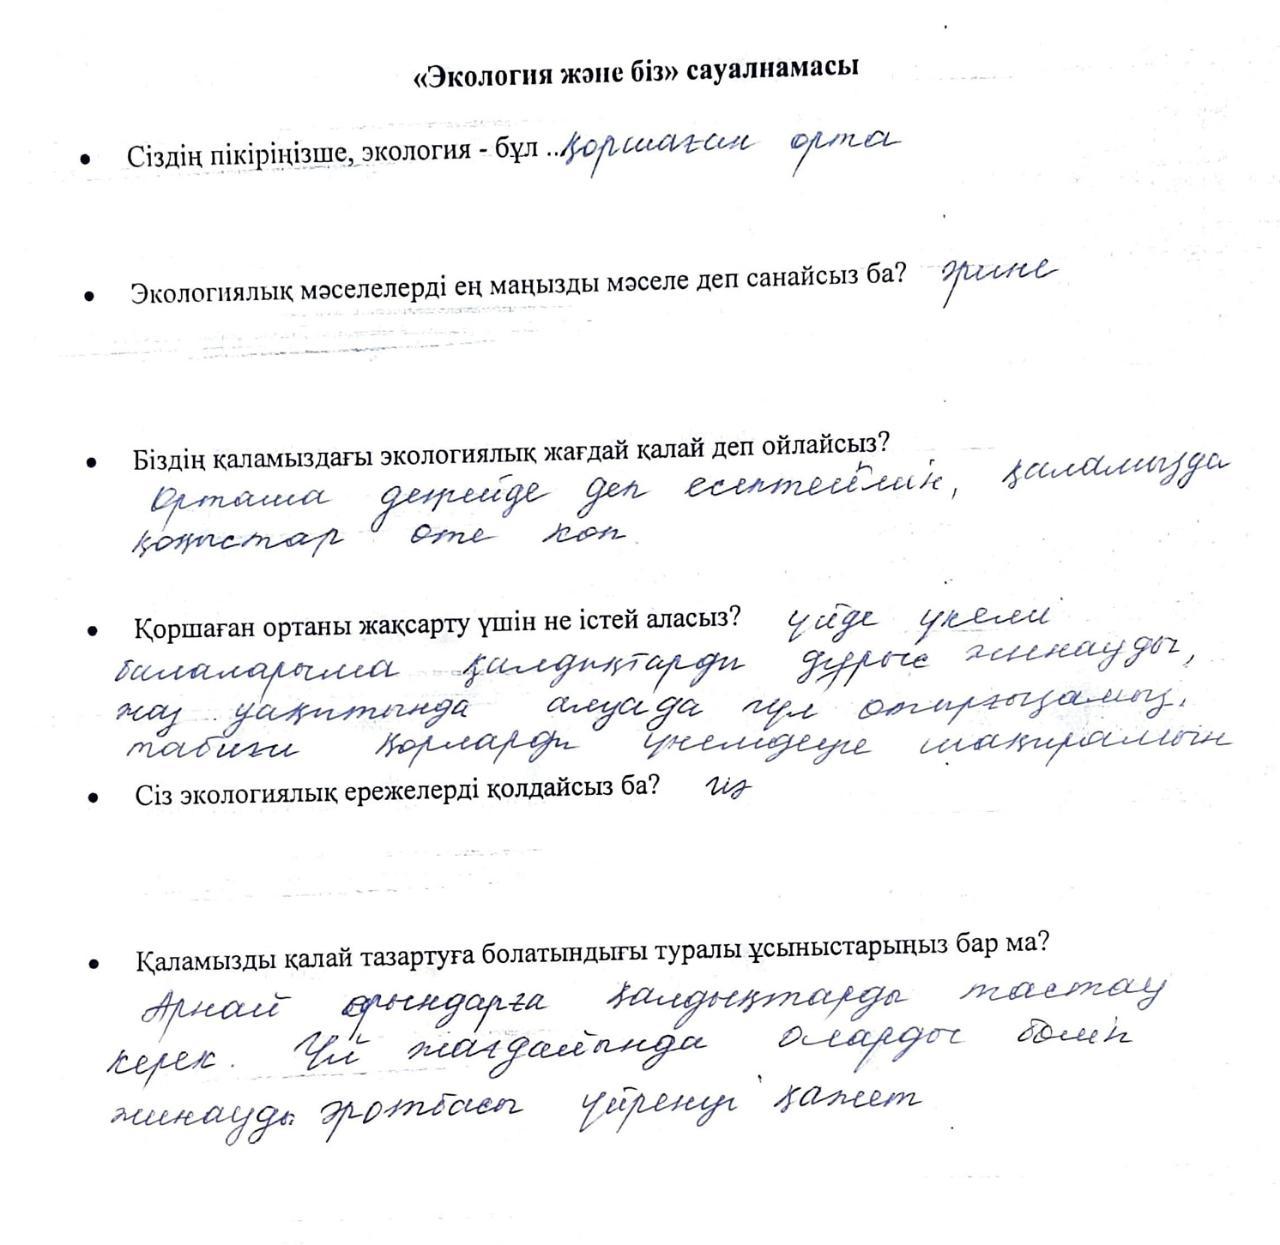 «Экология және біз» сауалнамасы
• Сіздің пікіріңізше, экология - бұл ..қоршаған орта
• Экологиялық мәселелерді ең маңызды мәселе деп санайсыз ба? әрине
• Біздің қаламыздағы экологиялық жағдай қалай деп ойлайсыз?
Орташа деңгейде деп есептеймін, қаламызда
қоқыстар өте көп
• Қоршаған ортаны жақсарту үшін не істей аласыз? үйде үнемі
балаларыма қалдықтарды дұрыс жинауды,
жаз уақытында аулада гүл отырғызамыз.
табиғи қорларды үнемдеуге шақырамын
• Сіз экологиялық ережелерді қолдайсыз ба? иә
• Қаламызды қалай тазартуға болатындығы туралы ұсыныстарыңыз бар ма?
Арнай орындарға қалдықтарды тастау
керек. Үй жағдайында оларды бөліп
жинауды әр отбасы үйренуі қажет